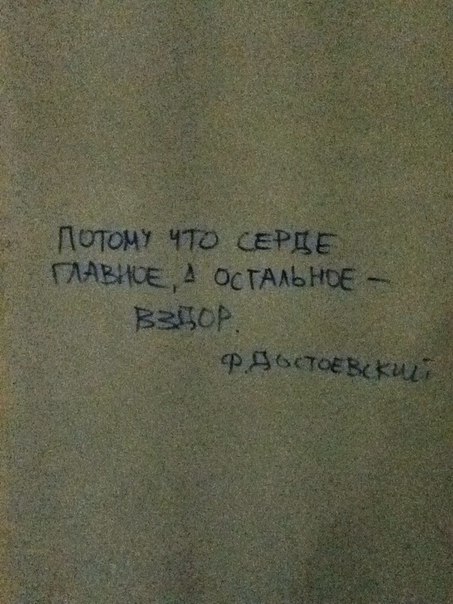 ПОТОМУ ЧТО СЕРДЕ
ГЛАВНОЕ, А ОСТАЛЬНОЕ –
ВЗДОР.
Ф. ДОСТОЕВСКИЙ